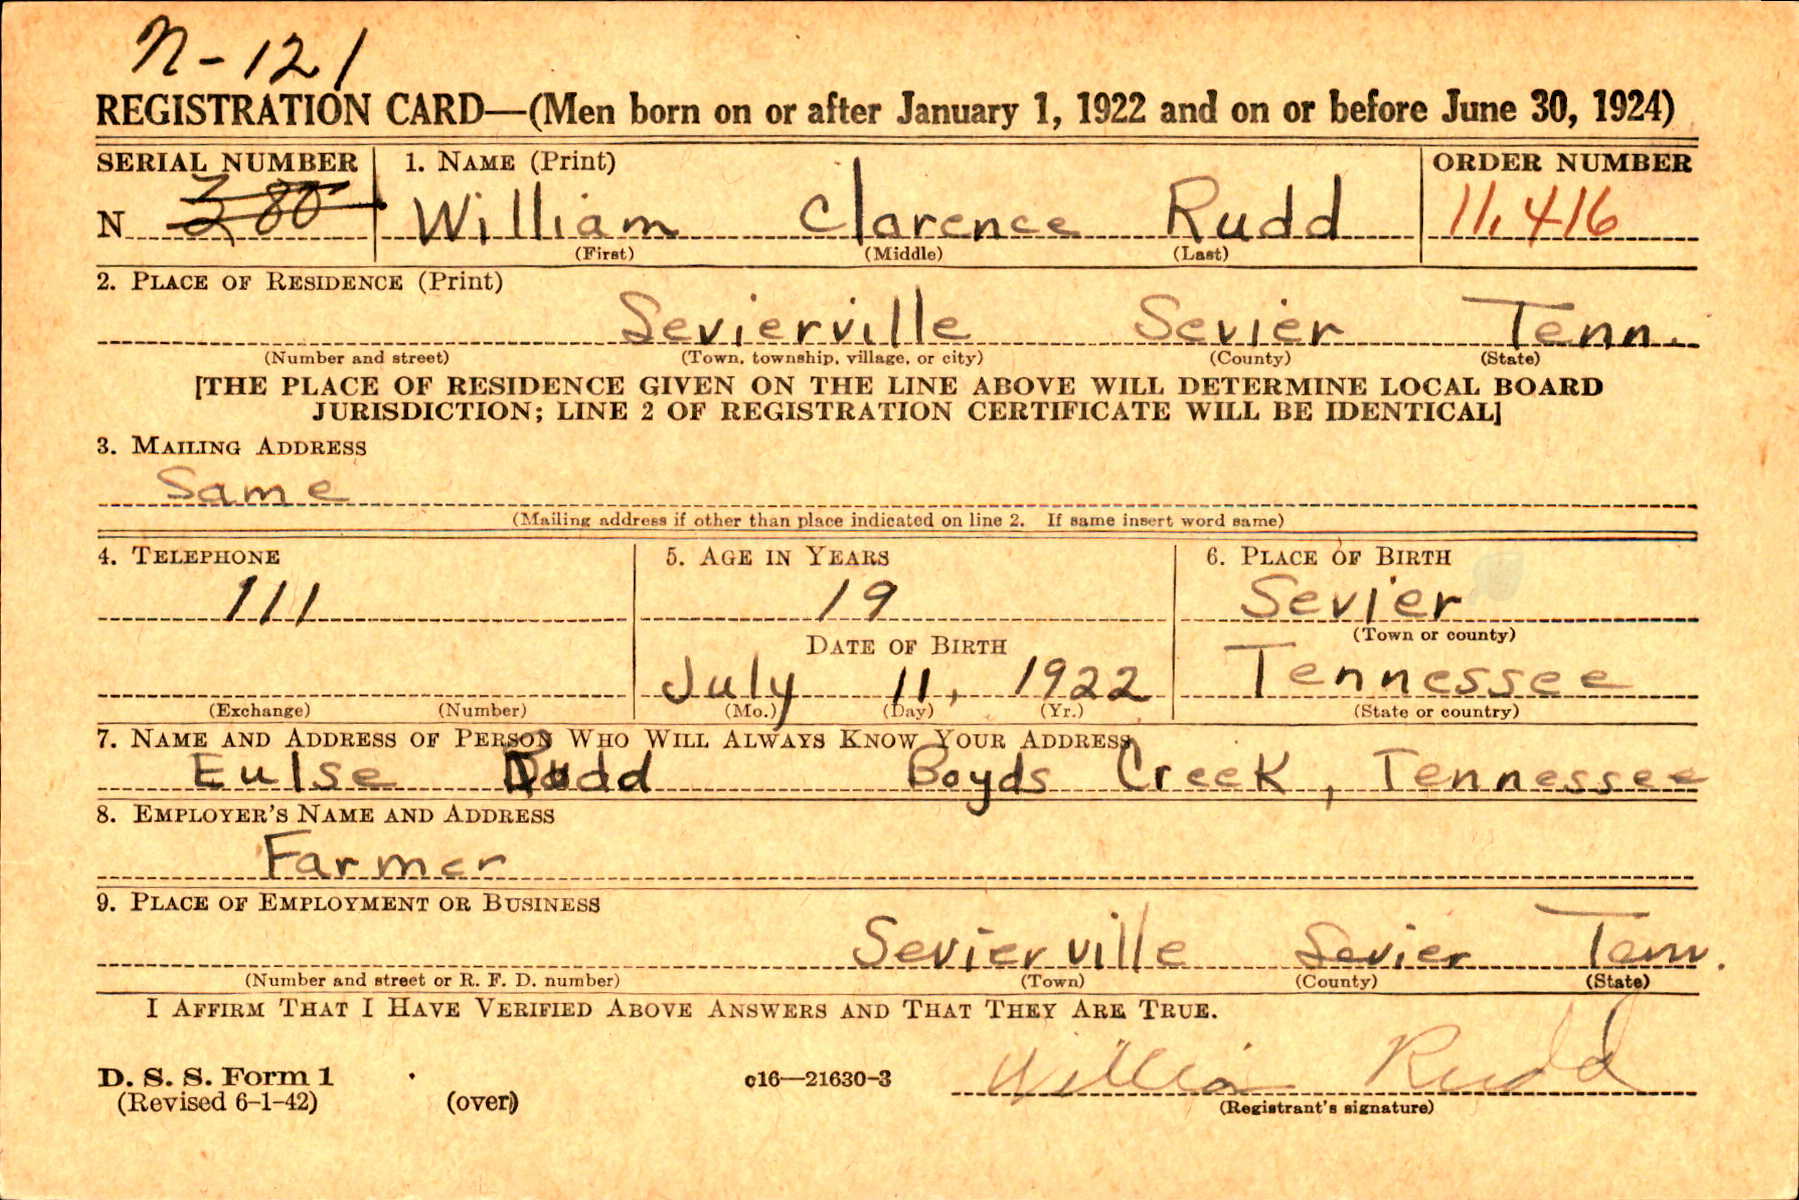 N-121
REGISTRATION CARD—(Men born on or after January 1, 1922 and on or before June 30, 1924)
SERIAL NUMBER 1. NAME (Print) ORDER NUMBER
N 380 William Clarence Rudd 11,416
(First) (Middle) (Last)
2. PLACE OF RESIDENCE (Print)
Sevierville Sevier Tenn.
(Number and street) (Town, township, village, or city) (County) (State)
[THE PLACE OF RESIDENCE GIVEN ON THE LINE ABOVE WILL DETERMINE LOCAL BOARD
JURISDICTION; LINE 2 OF REGISTRATION CERTIFICATE WILL BE IDENTICAL]
3. MAILING ADDRESS
Same
(Mailing address if other than place indicated on line 2. If same insert word same)
4. TELEPHONE 5. AGE IN YEARS 6. PLACE OF BIRTH
111 19 Sevier
(Town or county)
DATE OF BIRTH
July 11, 1922 Tennessee
(Exchange) (Number) (Mo.) (Day) (Yr.) (State or country)
7. NAME AND ADDRESS OF PERSON WHO WILL ALWAYS KNOW YOUR ADDRESS
Eulse Rudd Boyds Creek, Tennessee
8. EMPLOYER'S NAME AND ADDRESS
Farmer
9. PLACE OF EMPLOYMENT OR BUSINESS
Sevierville Sevier Tenn.
(Number and street or R. F. D. number) (Town) (County) (State)
I AFFIRM THAT I HAVE VERIFIED ABOVE ANSWERS AND THAT THEY ARE TRUE.
D. S. S. Form 1
(Revised 6-1-42) (over) c16—21630-3 William Rudd
(Registrant's signature)